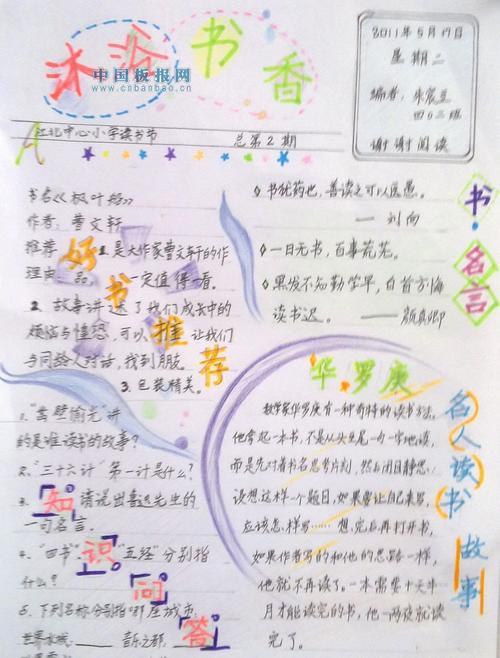 沐浴书香
中国板报网
www.cnbanbao.cn
2011年5月17日
星期二
编者：朱宸
四(1)班
谢谢阅读
江北中心小学读书节 总第2期
书名《枫叶船》
作者：曹文轩
推荐 1.是大作家曹文轩的作
理由： 品，一定值得一看。
2. 故事讲述了我们成长中的
烦恼与憧憬，可以 让我们
与同龄人对话，找到朋友。
3.包装精美。
好书推荐
书·名言
◇书犹药也，善读之可以医愚。
——刘向
◇一日无书，百事荒芜。
◇黑发不知勤学早，白首方悔
读书迟。 ——颜真卿
1."凿壁偷光"讲
的是谁读书的故事？
2."三十六计"第一计是什么？
3. 请说出鲁迅先生的
一句名言。
4."四书""五经"分别指
什么？
5.下列名称分别指哪座城市
世界水城：____ 音乐之都：____
知识问答
华罗庚
数学家华罗庚有一种奇特的读书方法。
他拿起一本书，不是从头至尾一句一字地读，
而是先对着书名思考片刻，然后闭目静思：
设想这样一个题目，如果要让自己来写，
应该怎样写……想完后再打开书，
如果作者写的和他的思路一样，
他就不再读了。一本需要十天半
月才能读完的书，他一两夜就读
完了。
名人读书故事